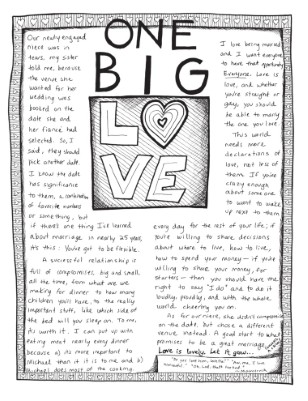 ONE
BIG
LOVE
Our newly engaged
niece was in
tears, my sister
told me, because
the venue she
wanted for her
wedding was
booked on the
date she and
her fiancé had
selected. So, I
said, they should
pick another date.
I know the date
has significance
to them, a combination
of favorite numbers
or something, but
if there's one thing I've learned
about marriage in nearly 25 years,
it's this: You've got to be flexible.
A successful relationship is
full of compromises, big and small,
all the time, from what are we
making for dinner to how many
children you'll have, to the really
important stuff, like which side of
the bed will you sleep on. To me,
it's worth it. I can put up with
eating meat nearly every dinner
because a) it's more important to
Michael than it is to me and b)
Michael does most of the cooking.
I love being married
and I want everyone
to have that opportunity.
Everyone. Love is
love, and whether
you're straight or
gay, you should
be able to marry
the one you love.
This world
needs more
declarations of
love, not less of
them. If you're
crazy enough
about someone
to want to wake
up next to them
every day for the rest of your life; if
you're willing to share decisions
about where to live, how to live,
how to spend your money — if you're
willing to share your money, for
starters — then you should have the
right to say "I do" and to do it
loudly, proudly, and with the whole
world cheering you on.
As for our niece, she didn't compromise
on the date, but chose a different
venue instead. A good start to what
promises to be a great marriage.
Love is lovely. Let it grow...